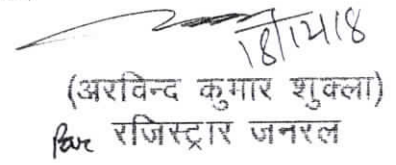 18/12/18
(अरविन्द कुमार शुक्ला)
रजिस्ट्रार जनरल